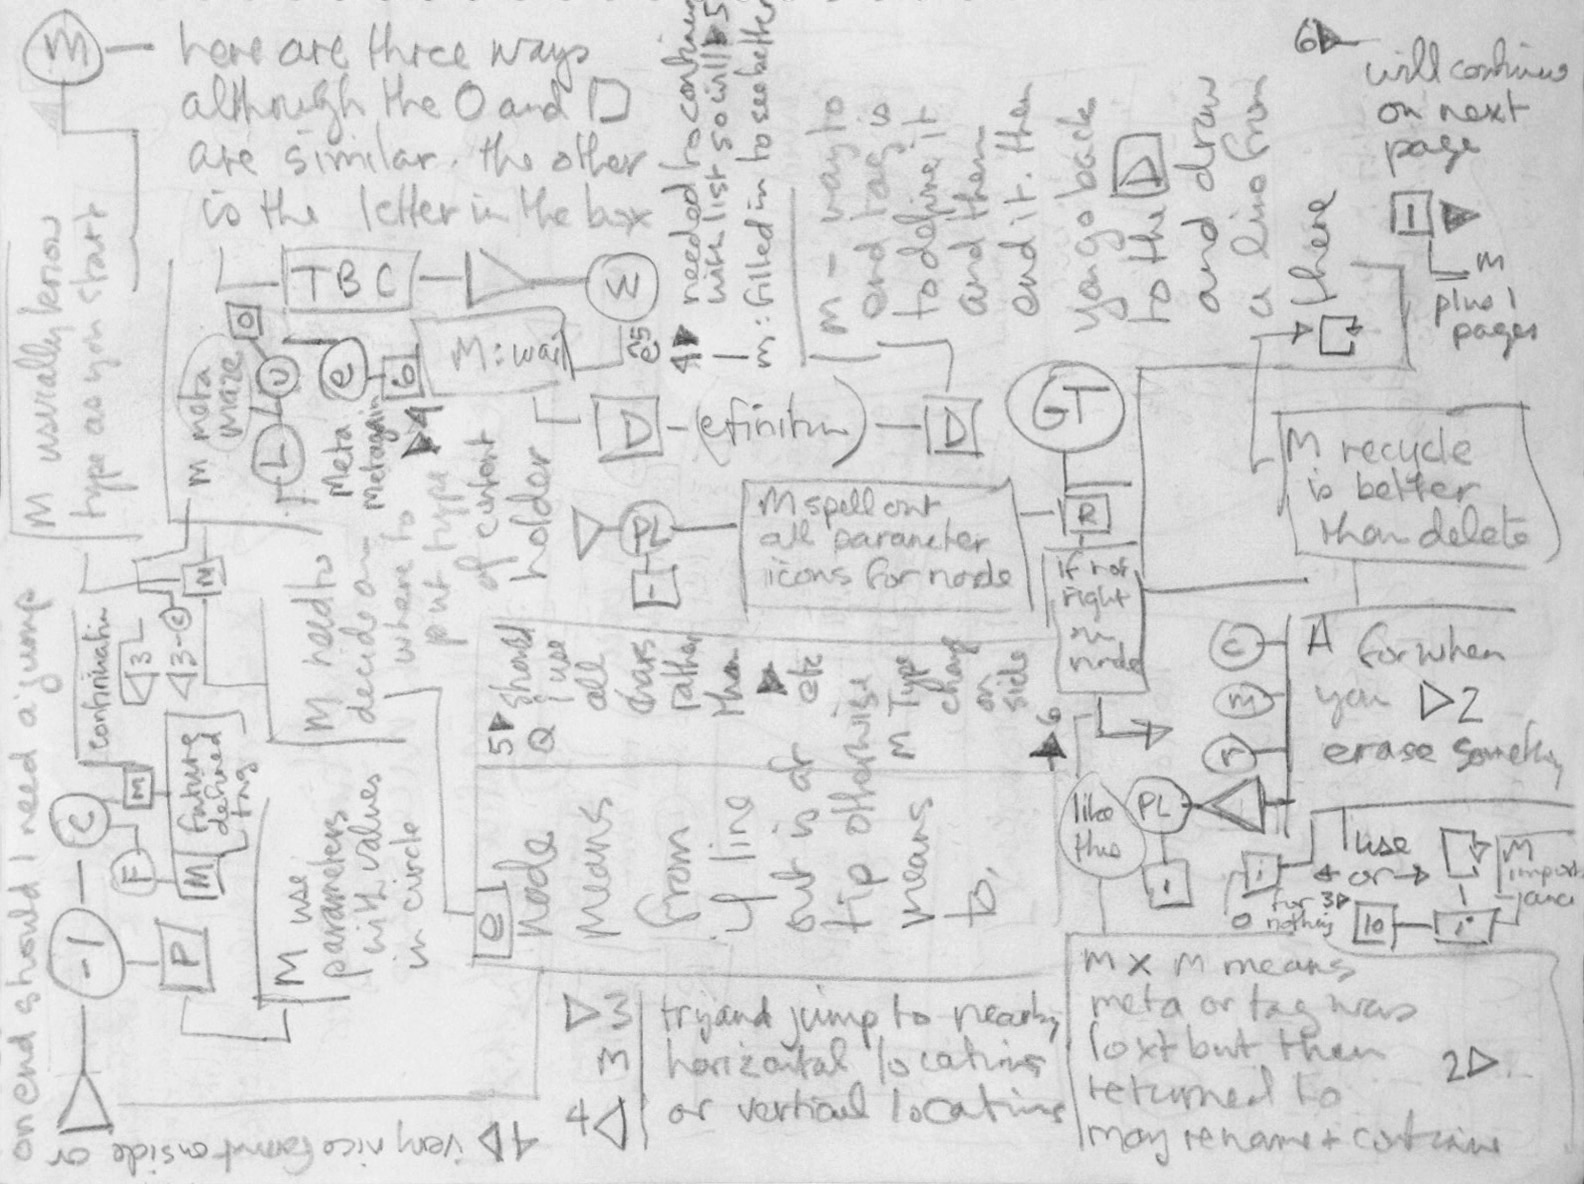 M
here are three ways
although the O and □
are similar. the other
is the letter in the box
needed to continue
with list so will ▶5
m: filled in to see better
4▶
6▶
will continue
on next
page
1
m
plus 1
pages
M usually know
type as you start
m meta
maze
L
U
O
TBC
M
M: wait
e
6
meta
metagain
m - way to
end tag is
to define it
and then
end it. then
you go back
to the D
and draw
a line from
there
D
(efinition)
D
GT
M recycle
is better
than delete
PL
-
M spell out
all parameter
icons for node
R
if not
right
in
node
M need to
decide on
where to
put type
of content
holder
on end should I need a jump
continuation
3
3-e
M
C
M
F
M
future
defined
tag
-1
P
M use
parameters
with values
in circle
5▶ should
Q I use
all
chars
rather
than
▶
etc
M Type
change
on
side
6
e
node
means
from
if line
out is at
tip otherwise
means
to.
C
m
A for when
you ▷2
erase something
like
this
PL
i
for
nothing
3▶
I use
← or →
10
i
M
▷3
m
4◁
try and jump to nearby
horizontal locations
or vertical locations
m x m means
meta or tag was
lost but then
returned to
may rename + continue
2▷
very nice format on side or